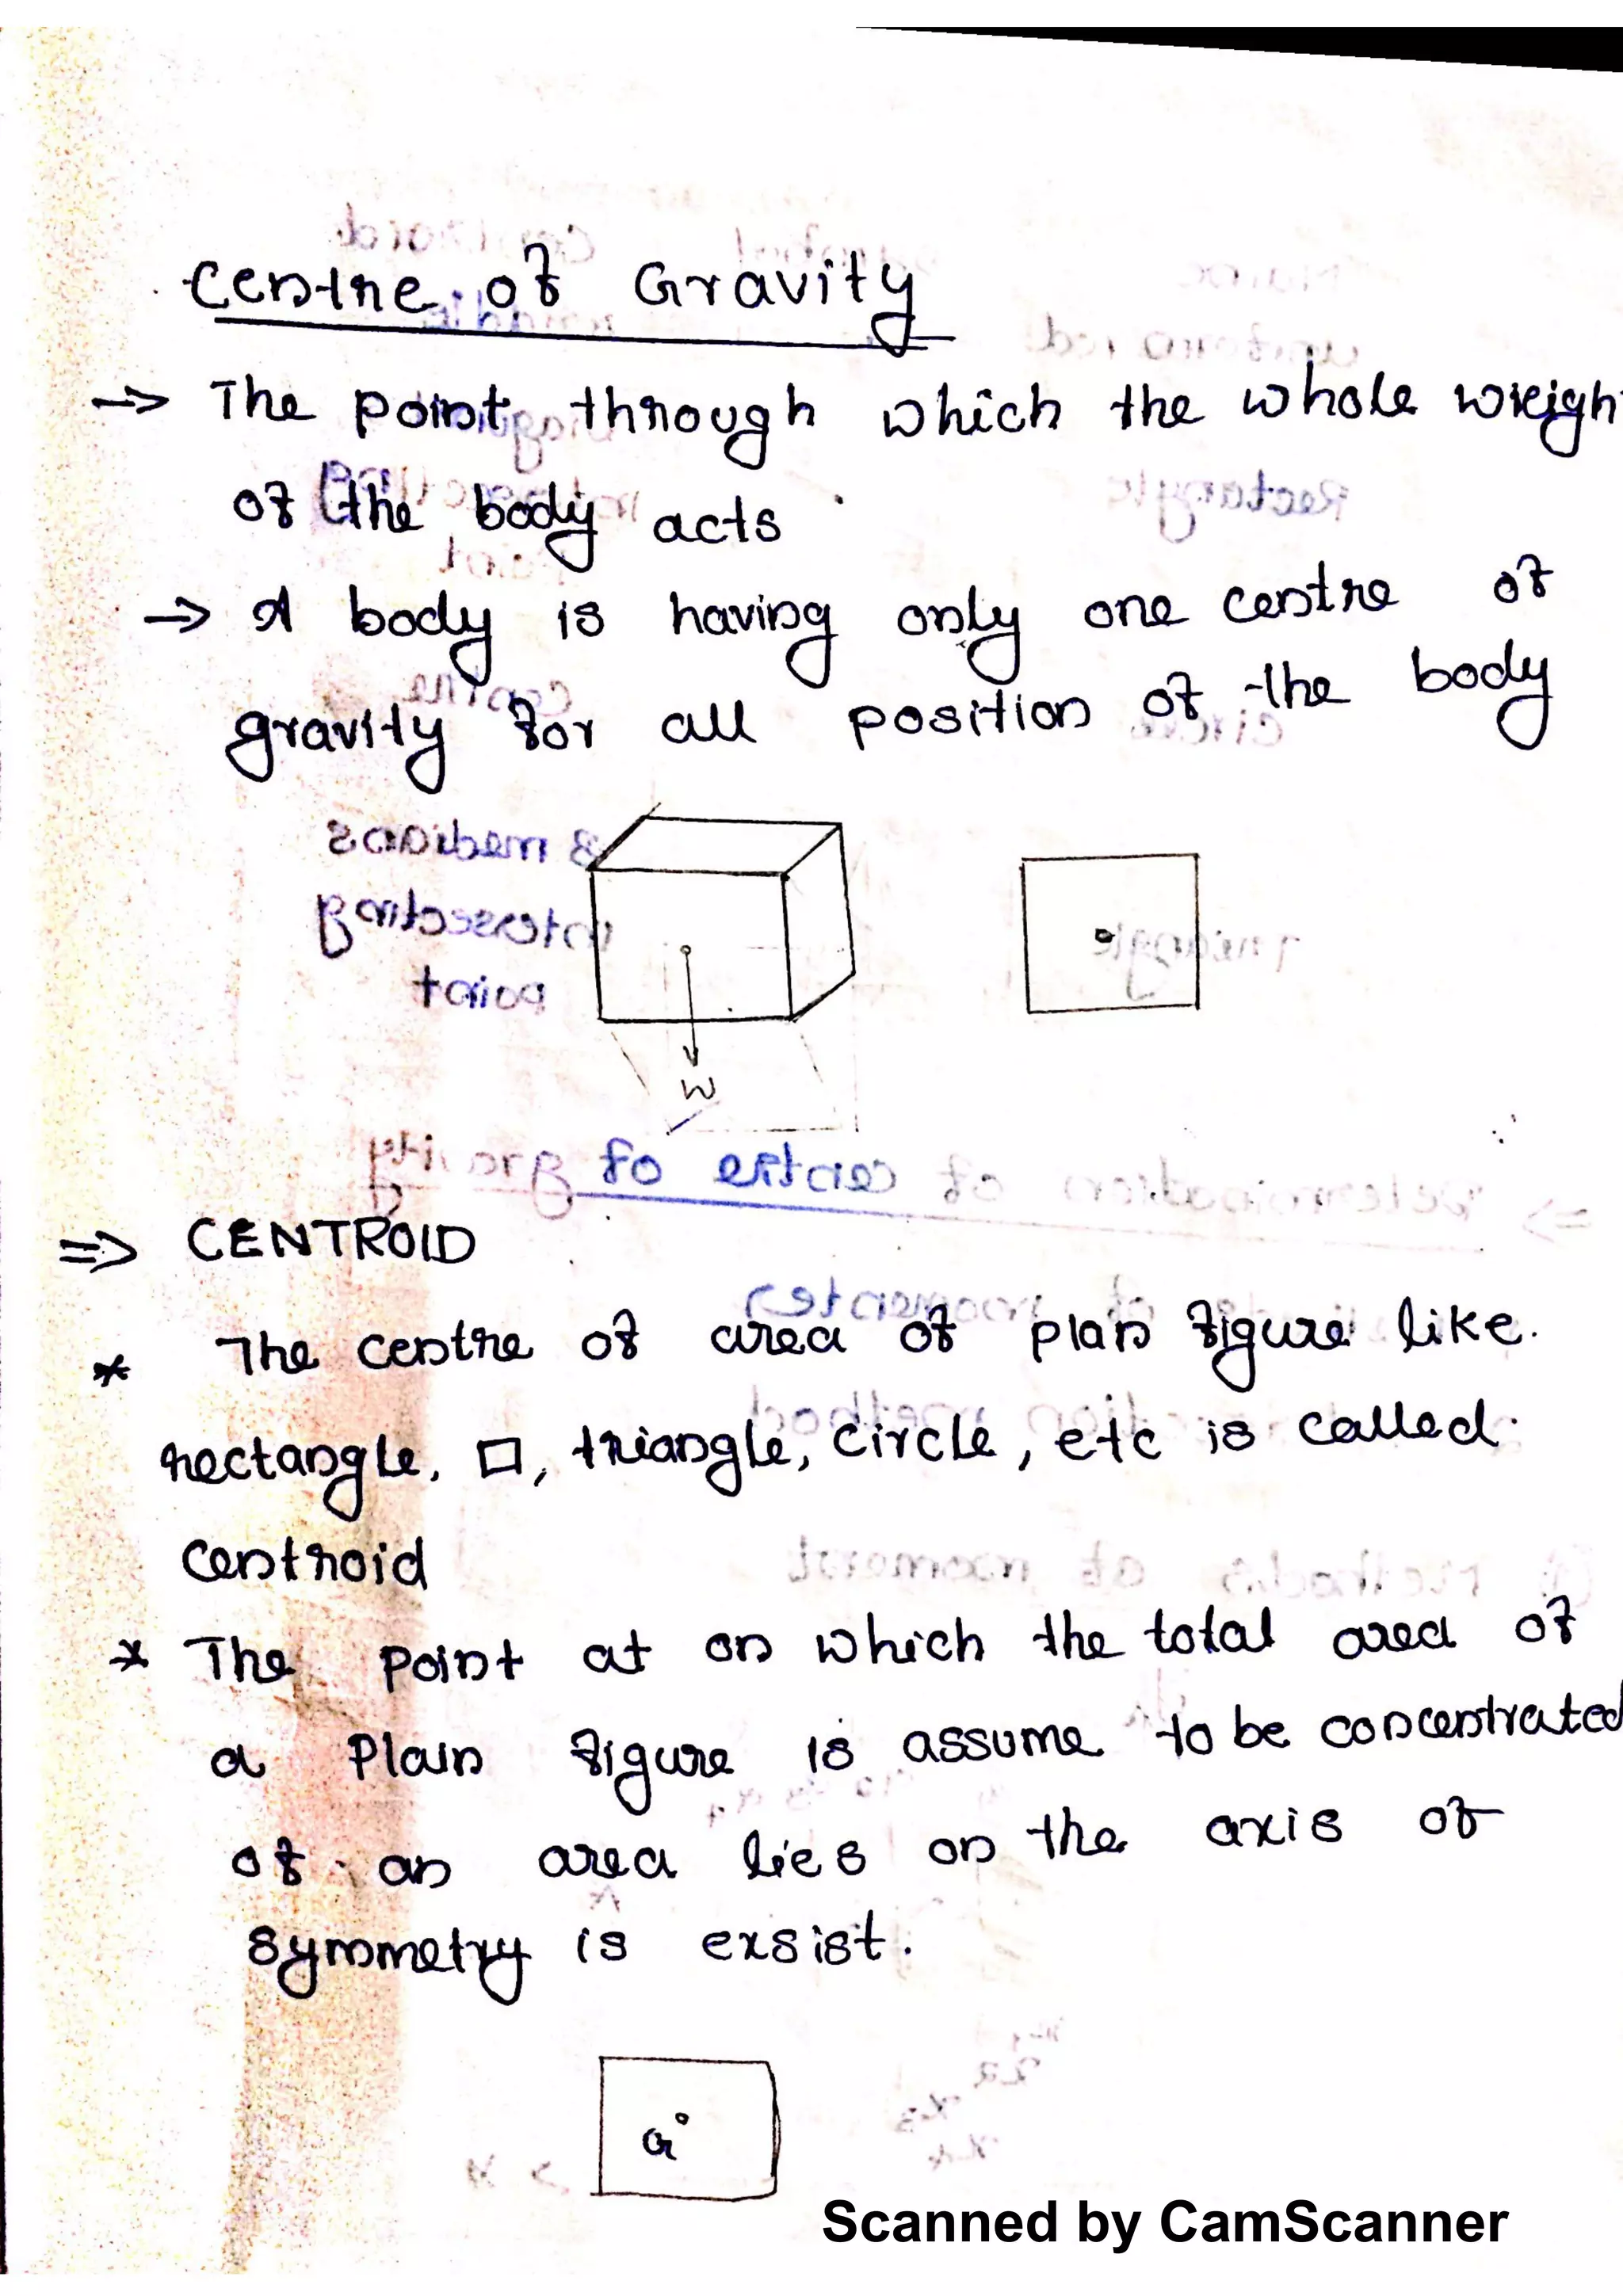 Centre of Gravity
→ The point through which the whole weigh
of the body acts
→ A body is having only one centre of
gravity for all position of the body
W
=> CENTROID
* The centre of area of plan figure like.
rectangle, □, triangle, circle, etc is called
centroid
* The point at on which the total area of
a plain figure is assume to be concentrated
of an area lies on the axis of
symmetry is exsist.
G
Scanned by CamScanner